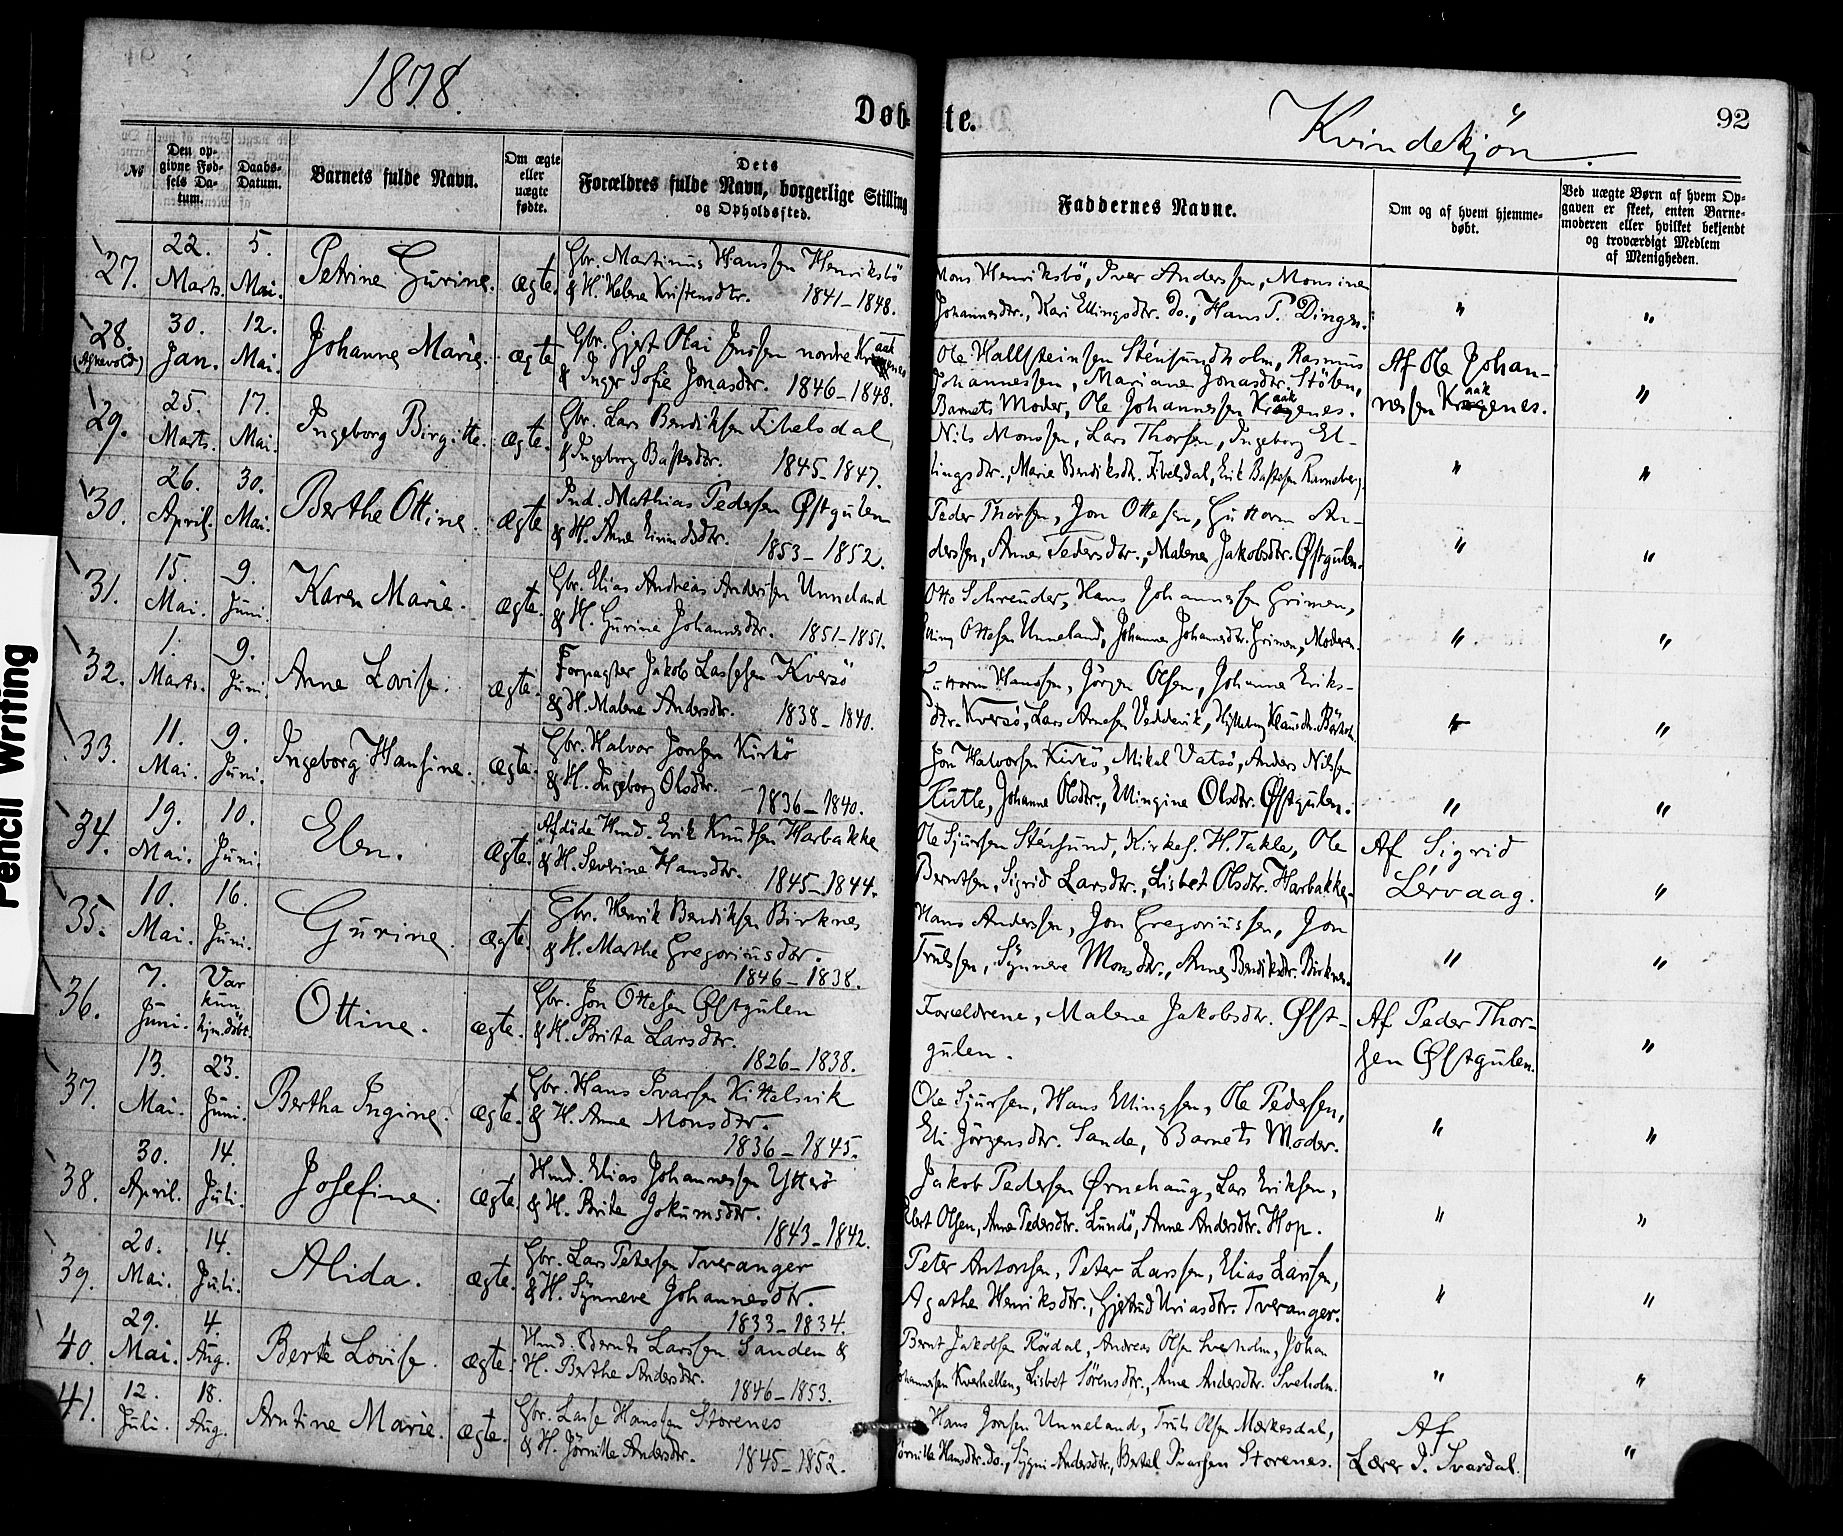 1878.
Døb-te.
Kvindekjøn.
92
№
Den op-
givne Fød-
sels Da-
tum.
Daabs-
Datum.
Barnets fulde Navn.
Om ægte
eller
uægte
fødte.
Dets
Forældres fulde Navn, borgerlige Stilling
og Opholdssted.
Faddernes Navne.
Om og af hvem hjemme-
døbt.
Ved uægte Børn af hvem Op-
gaven er skeet, enten Barne-
moderen eller hvilket bekjendt
og troværdigt Medlem
af Menigheden.
27. 22. Marts. 5. Mai. Petrine Gurine. ægte.
Gbr. Martinus Hanssen Henriksbö
& H. Helene Kristensdtr. 1841-1848.
Mons Henriksbö, Iver Anderssen, Monsine
Johannesdtr., Kari Ellingsdtr. do., Hans P. Dingen. " "
28. 30. Jan. 12. Mai. Johanne Marie. ægte
Gbr. Gjert Olai Jenssen nordre Kraakenes
& Inger Sofie Jonasdtr. 1846-1848.
Ole Hallsteinsen Stensundholm, Rasmus
Johannessen, Mariane Jonasdtr. Stölen,
Barnets Moder, Ole Johannessen Kraakenes.
Af Ole Johan-
nessen Kraakenes. "
29. 25. Marts. 17. Mai. Ingeborg Birgitte. ægte.
Gbr. Lars Bendiksen Fivelsdal,
& Ingeborg Bastesdtr. 1845-1847.
Nils Monssen, Lars Thorsen, Ingeborg El-
lingsdtr., Marie Bendiksdtr. Fivelsdal, Erik Bastesen Ravneberg. " "
30. 26. April. 30. Mai. Berthe Ottine. ægte
Ind. Mathias Pedersen Østgulen
& H. Anne Eivindsdtr. 1853-1852.
Peder Thorsen, Jon Ottesen, Guttorm An-
derssen, Anne Pedersdtr., Malene Jakobsdtr. Østgulen. " "
31. 15. Mai. 9. Juni. Karen Marie. ægte.
Gbr. Elias Andreas Anderssen Unneland
& H. Gurine Johannesdtr. 1851-1851.
Otto Schreuder, Hans Johannessen Grimen,
Elling Ottesen Unneland, Johanne Johannesdtr. Grimen, Moderen. " "
32. 1. Marts. 9. Juni. Anne Lovise. ægte.
Forpagter Jakob Lassesen Kversö
& H. Malene Andersdtr. 1838-1840.
Guttorm Hanssen, Jörgen Olsen, Johanne Eriks-
dtr. Kversö, Lars Arnesen Veddevik, " "
33. 11. Mai. 9. Juni. Ingeborg Hansine. ægte.
Gbr. Halvor Jonsen Kirkö
& H. Ingeborg Olsdtr. 1836-1840.
Jon Halvorsen Kirkö, Mikal Vatsö, Anders Nilsen
Rutle, Johanne Olsdtr., Ellingine Olsdtr. Østgulen. " "
34. 19. Mai. 10. Juni. Elen. ægte.
Afdöde Hmd. Erik Knudsen Harbakke
& H. Severine Hansdtr. 1845-1844.
Ole Sjursen Stensund, Kirkes. H. Takle, Ole
Berntsen, Sigrid Larsdtr., Lisbet Olsdtr. Harbakke.
Af Sigrid
Lervaag. "
35. 10. Mai. 16. Juni. Gurine. ægte.
Gbr. Henrik Bendiksen Birknes
& H. Marthe Gregoriusdtr.
1846-1838.
Hans Anderssen, Jon Gregoriussen, Jon
Trulssen, Synneve Monsdtr., Anne Bendiksdtr. Birknes. " "
36. 7. Juni. Var kun hjm.döbt. Ottine. ægte.
Gbr. Jon Ottesen Østgulen
& H. Brita Larsdtr.
1826-1838.
Forældrene, Malene Jakobsdtr. Øst-
gulen.
Af Peder Thor-
sen Østgulen. "
37. 13. Mai. 23. Juni. Bertha Ingine. ægte.
Gbr. Hans Ivarsen Kittelsvik
& H. Anne Monsdtr.
1836-1845.
Ole Sjursen, Hans Ellingsen, Ole Pedersen,
Eli Jörgensdtr. Sande, Barnets Moder. " "
38. 30. April. 14. Juli. Josefine. ægte.
Hmd. Elias Johannessen Ytterö
& H. Brite Jokumsdtr.
1843-1842.
Jakob Pedersen Ørnehaug, Lars Eriksen,
Olsen, Anne Pedersdtr. Lundö, Anne Andersdtr. Hop. " "
39. 20. Mai. 14. Juli. Alida. ægte.
Gbr. Lars Petersen Tveranger
& H. Synneve Johannesdtr.
1833-1834.
Peter Antonsen, Peter Larssen, Elias Larssen,
Agathe Henriksdtr., Gjertrud Uriasdtr. Tveranger. " "
40. 29. Mai. 4. Aug. Berte Lovise. ægte.
Hmd. Bernts Larssen Sanden &
H. Berthe Andersdtr.
1846-1853.
Bernt Jakobsen Rördal, Andreas Olsen Sveholm, Johan
Johannessen Kverhellen, Lisbet Sörensdtr., Anne Andersdtr. Sveholm. " "
41. 12. Juli. 18. Aug. Arntine Marie. ægte.
Gbr. Lasse Hanssen Storenes
& H. Jörnille Andersdtr. 1845-1852.
Hans Jonsen Unneland, Truls Olsen Mækesdal,
Jörnille Hansdtr. do., Sygni Andersdtr., Bertel Ivarsen Storenes.
Af
Lærer I. Svardal. "
Pencil Writing